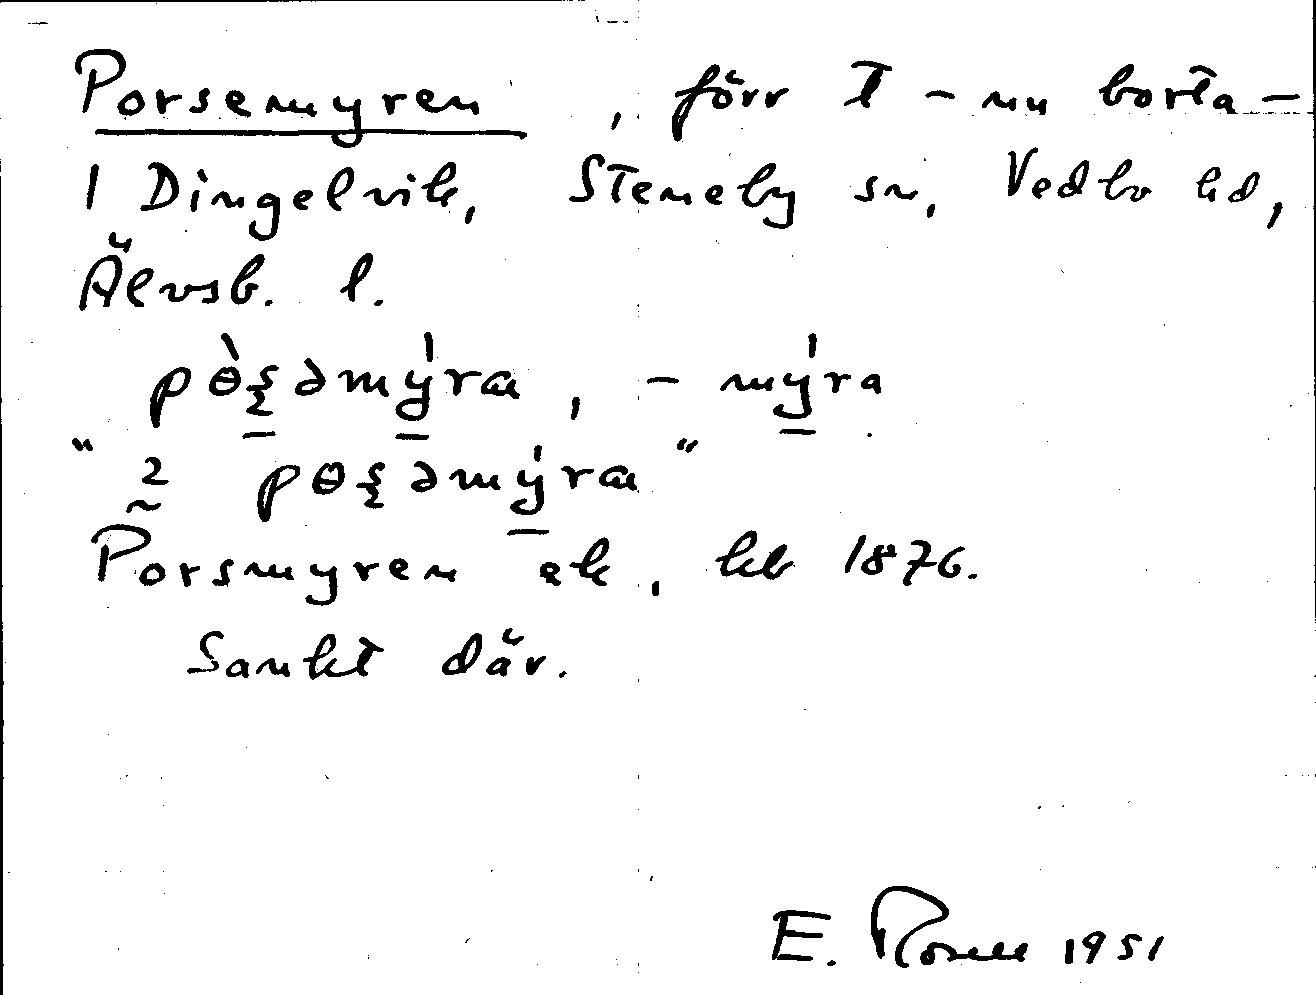 Porsemyren, förr t - nu borta -
1 Dingelvik, Steneby sn, Vedbo hd,
Älvsb. l.
pɵ̀ʂəmýra, - mýra
" 2̰ pɵʂəmýra "
Porsmyren ek, hk 1876.
Sankt där.
E. Rosell 1951